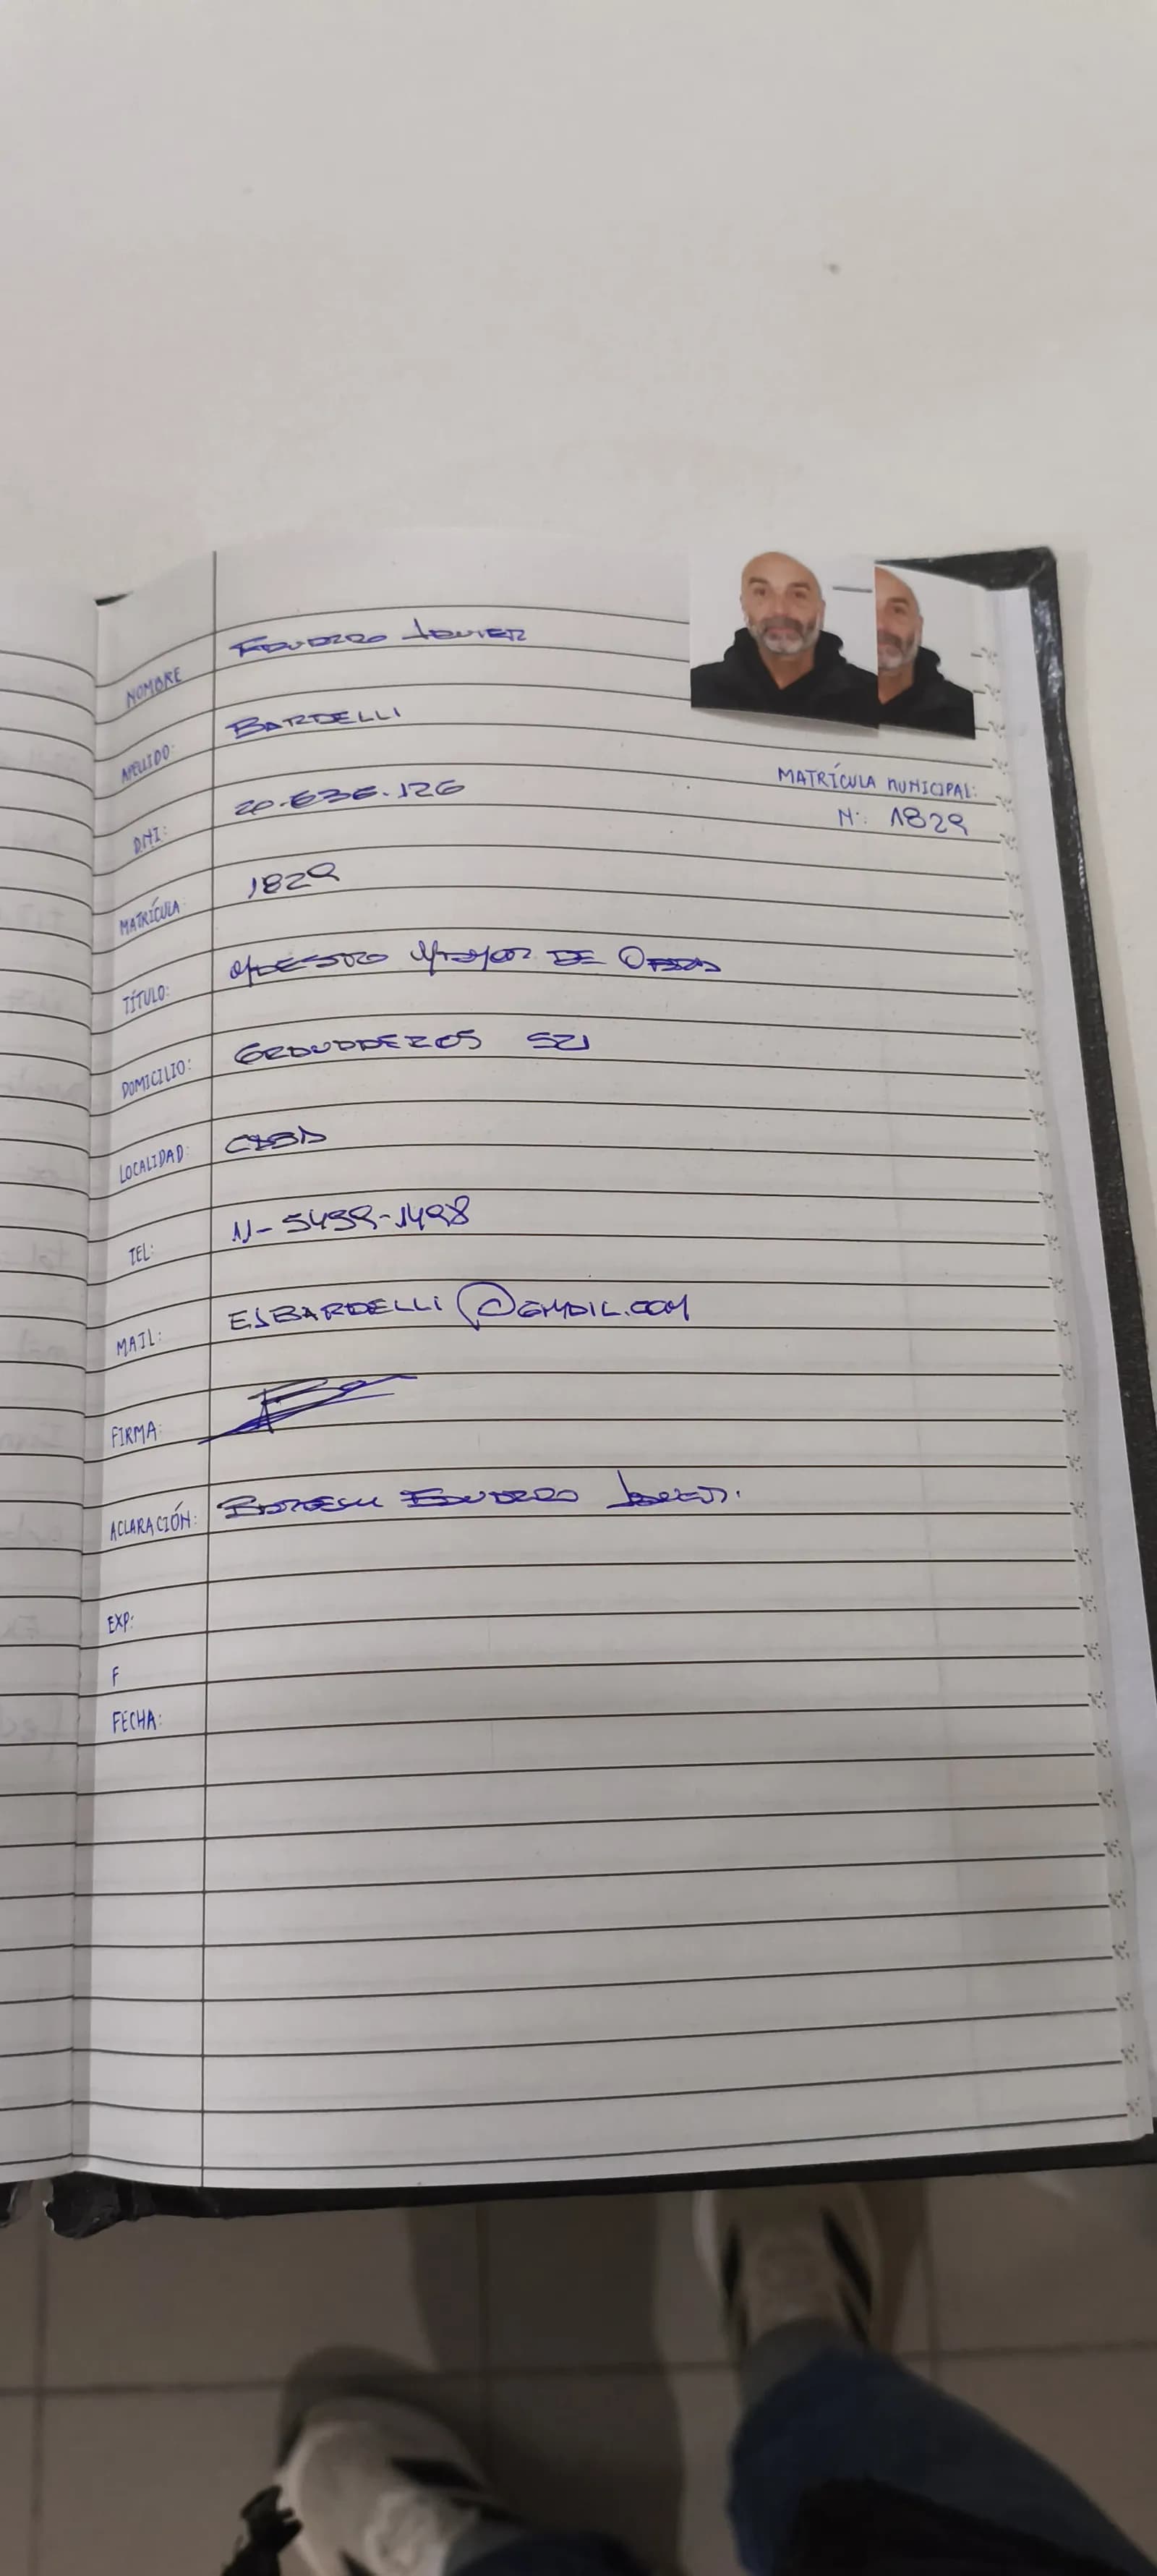 NOMBRE EDUARDO JAVIER
APELLIDO: BARDELLI
DNI: 20.636.126
MATRÍCULA MUNICIPAL:
N: 1829
MATRÍCULA: 1829
TÍTULO: MAESTRO MAYOR DE OBRAS
DOMICILIO: 521
LOCALIDAD: CABA
TEL: 11-5499-1498
MAIL: EJBARDELLI@GMAIL.COM
FIRMA:
ACLARACIÓN: BARDELLI EDUARDO JAVIER.
EXP:
F
FECHA: